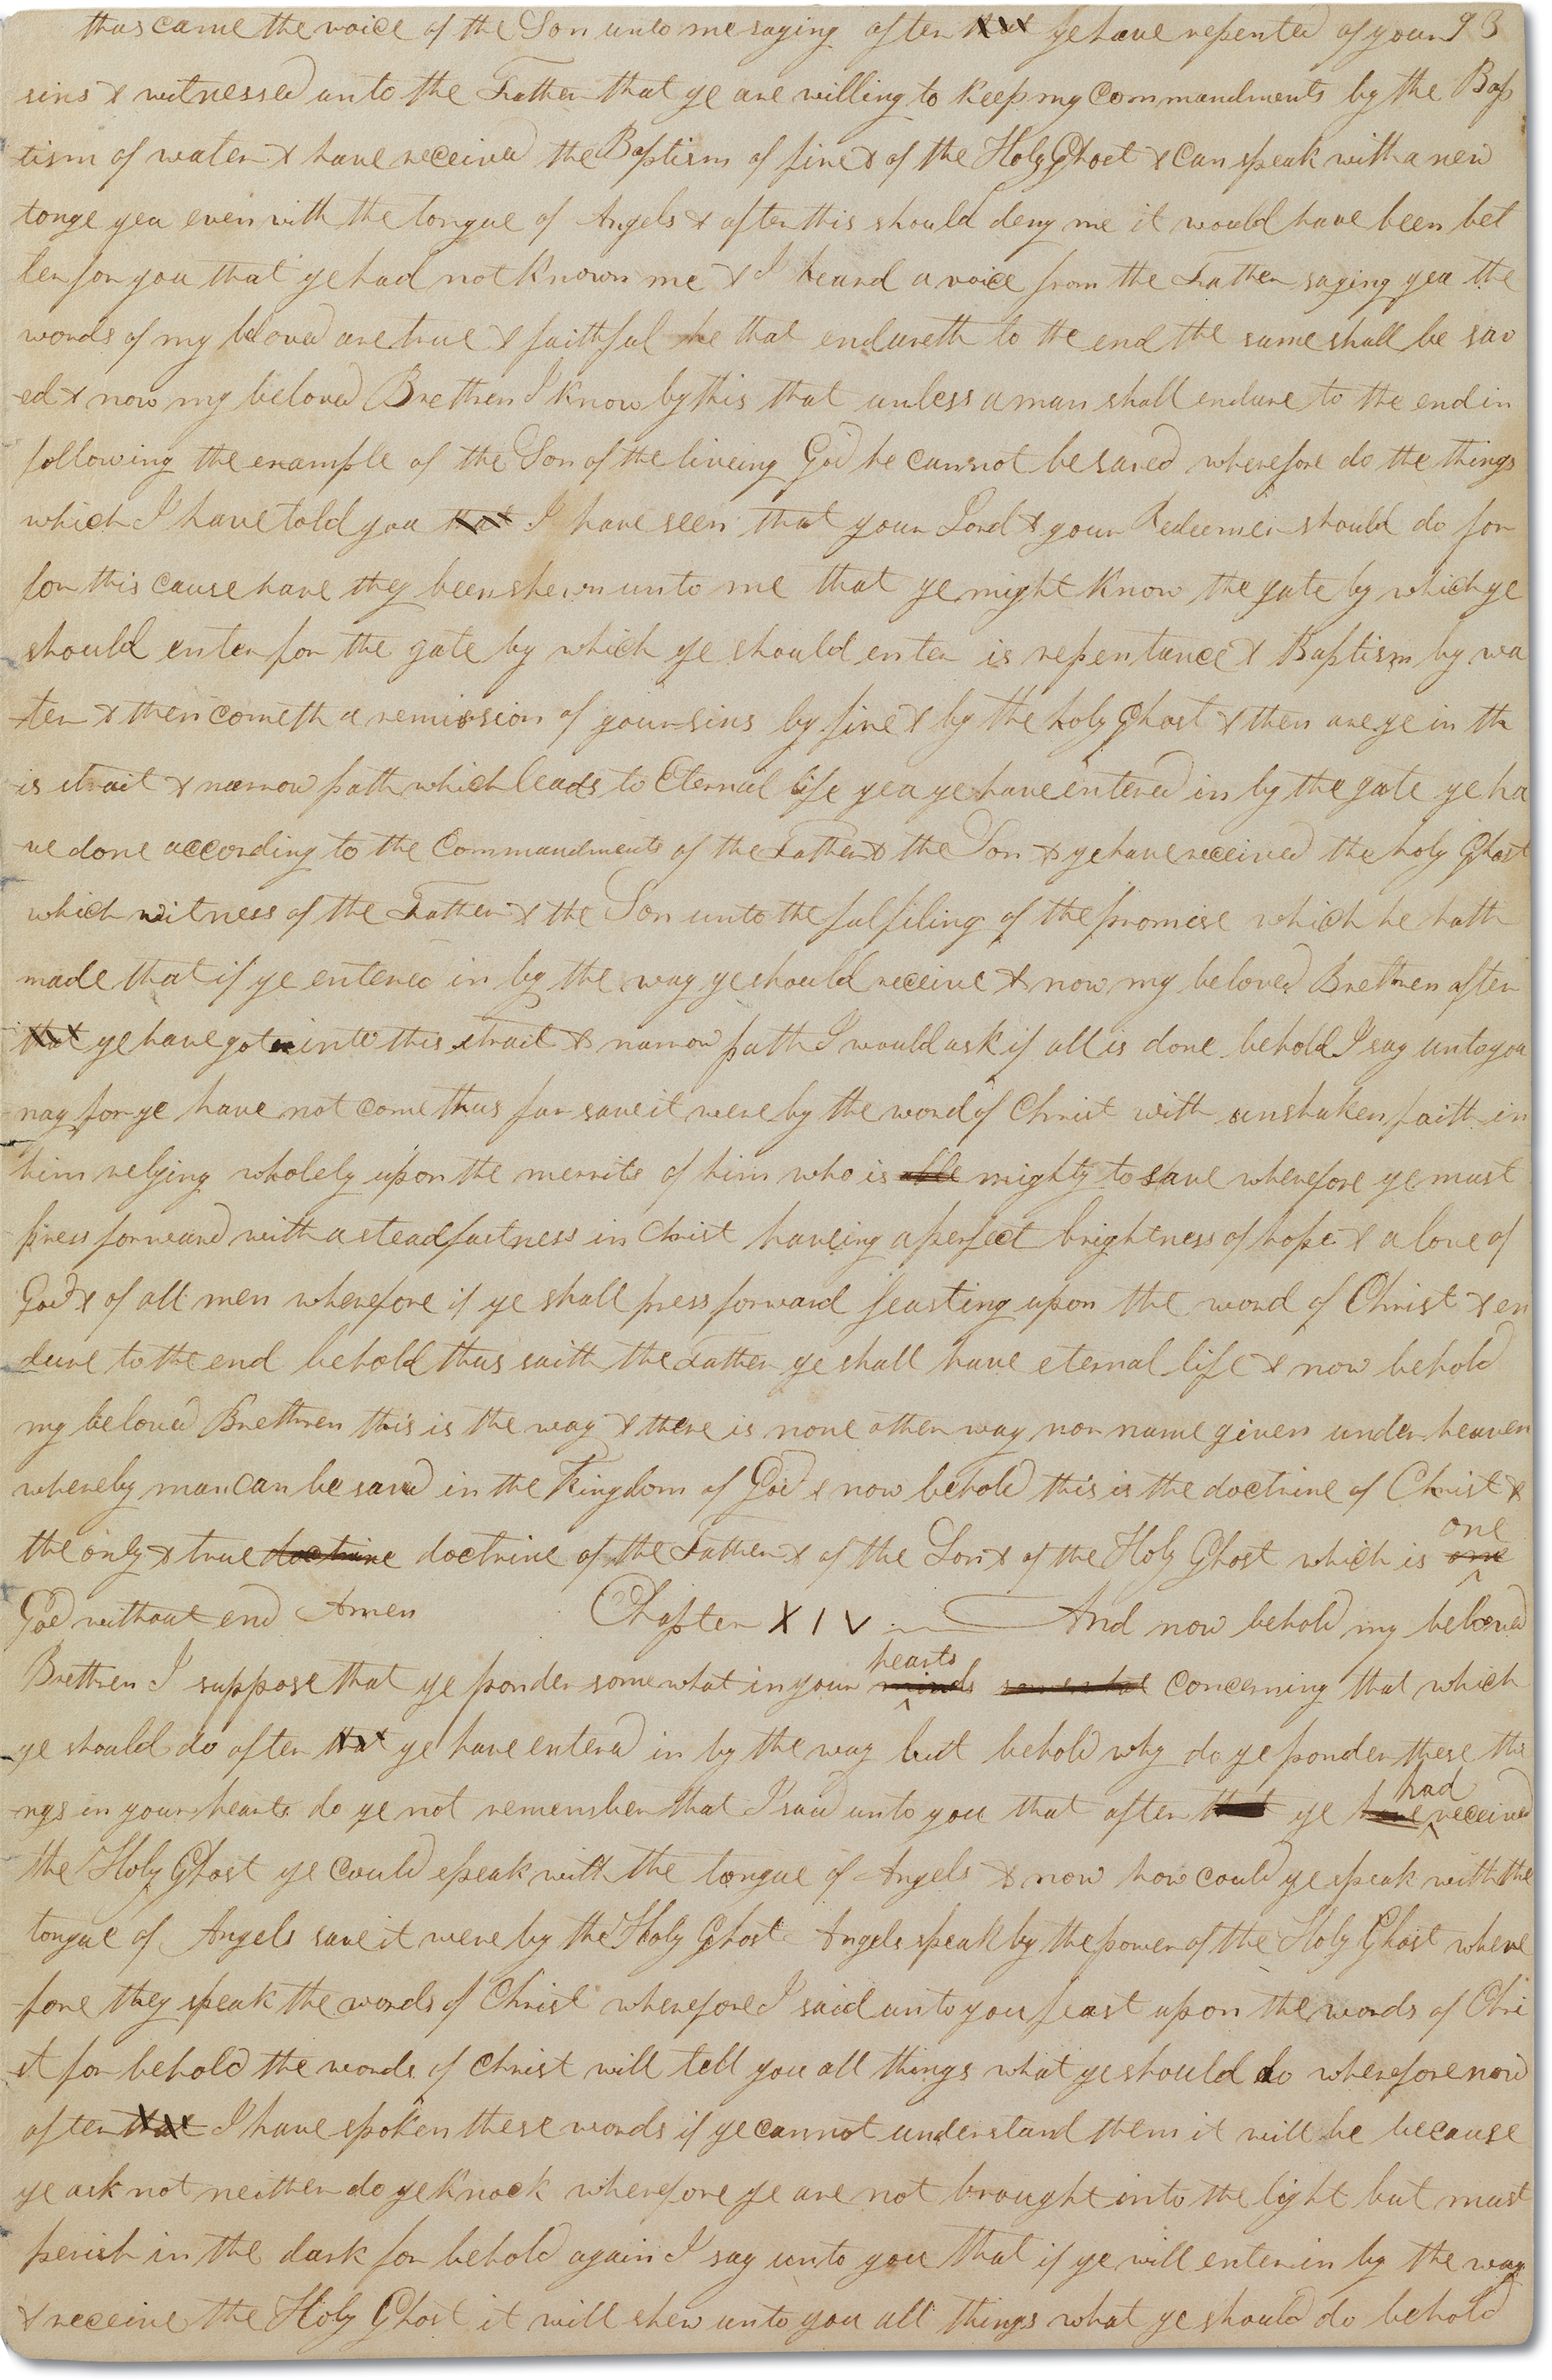 thus came the voice of the Son unto me saying after that ye have repented of your 93
sins & witnessed unto the Father that ye are willing to keep my commandments by the Bap
tism of water & have received the Baptism of fire & of the Holy Ghost & can speak with a new
tonge yea even with the tongue of Angels & after this should deny me it would have been bet
ter for you that ye had not known me & I heard a voice from the Father saying yea the
words of my beloved are true & faithful he that endureth to the end the same shall be sav
ed & now my beloved Brethren I know by this that unless a man shall endure to the end in
following the example of the Son of the liveing God he cannot be saved wherefore do the things
which I have told you that I have seen that your Lord & your Redeemer should do for
for this cause have they been shewn unto me that ye might know the gate by which ye
should enter for the gate by which ye should enter is repentance & Baptism by wa
ter & then cometh a remission of your sins by fire & by the holy Ghost & then are ye in th
is strait & narrow path which leads to Eternal life yea ye have entered in by the gate ye ha
ve done according to the Commandments of the Father & the Son & ye have received the holy Ghost
which witness of the Father & the Son unto the fulfiling of the promise which he hath
made that if ye entered in by the way ye should receive & now my beloved Brethren after
that ye have got into this strait & narrow path I would ask if all is done behold I say unto you
nay for ye have not come thus far save it were by the word of Christ with unshaken faith in
him relying wholely upon the merrits of him who is able mighty to save wherefore ye must
press forward with a steadfastness in Christ haveing a perfect brightness of hope & a love of
God & of all men wherefore if ye shall press forward feasting upon the word of Christ & en
dure to the end behold thus saith the Father ye shall have eternal life & now behold
my beloved Brethren this is the way & there is none other way nor name given under heaven
whereby man can be saved in the Kingdom of God & now behold this is the doctrine of Christ &
the only & true doctrine doctrine of the Father & of the Son & of the Holy Ghost which is one one
God without end Amen Chapter XIV And now behold my beloved
Brethren I suppose that ye ponder somewhat in your minds hearts somewhat concerning that which
ye should do after that ye have entered in by the way but behold why do ye ponder these thi
ngs in your hearts do ye not remember that I said unto you that after that ye have had received
the Holy Ghost ye could speak with the tongue of Angels & now how could ye speak with the
tongue of Angels save it were by the Holy Ghost Angels speak by the power of the Holy Ghost where
fore they speak the words of Christ wherefore I said unto you feast upon the words of Chri
st for behold the words of Christ will tell you all things what ye should do wherefore now
after that I have spoken these words if ye cannot understand them it will be because
ye ask not neither do ye knock wherefore ye are not brought into the light but must
perish in the dark for behold again I say unto you that if ye will enter in by the way
& receive the Holy Ghost it will shew unto you all things what ye should do behold